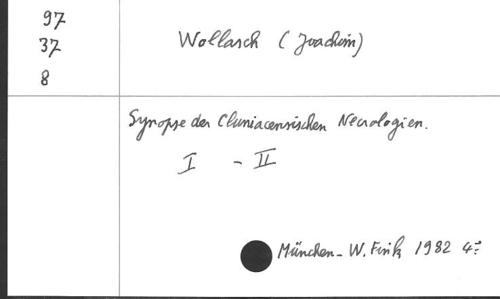 97
37
8
Wollasch (Joachim)
Synopse der Cluniacensischen Necrologien.
I - II
München - W. Fink 1982 4º